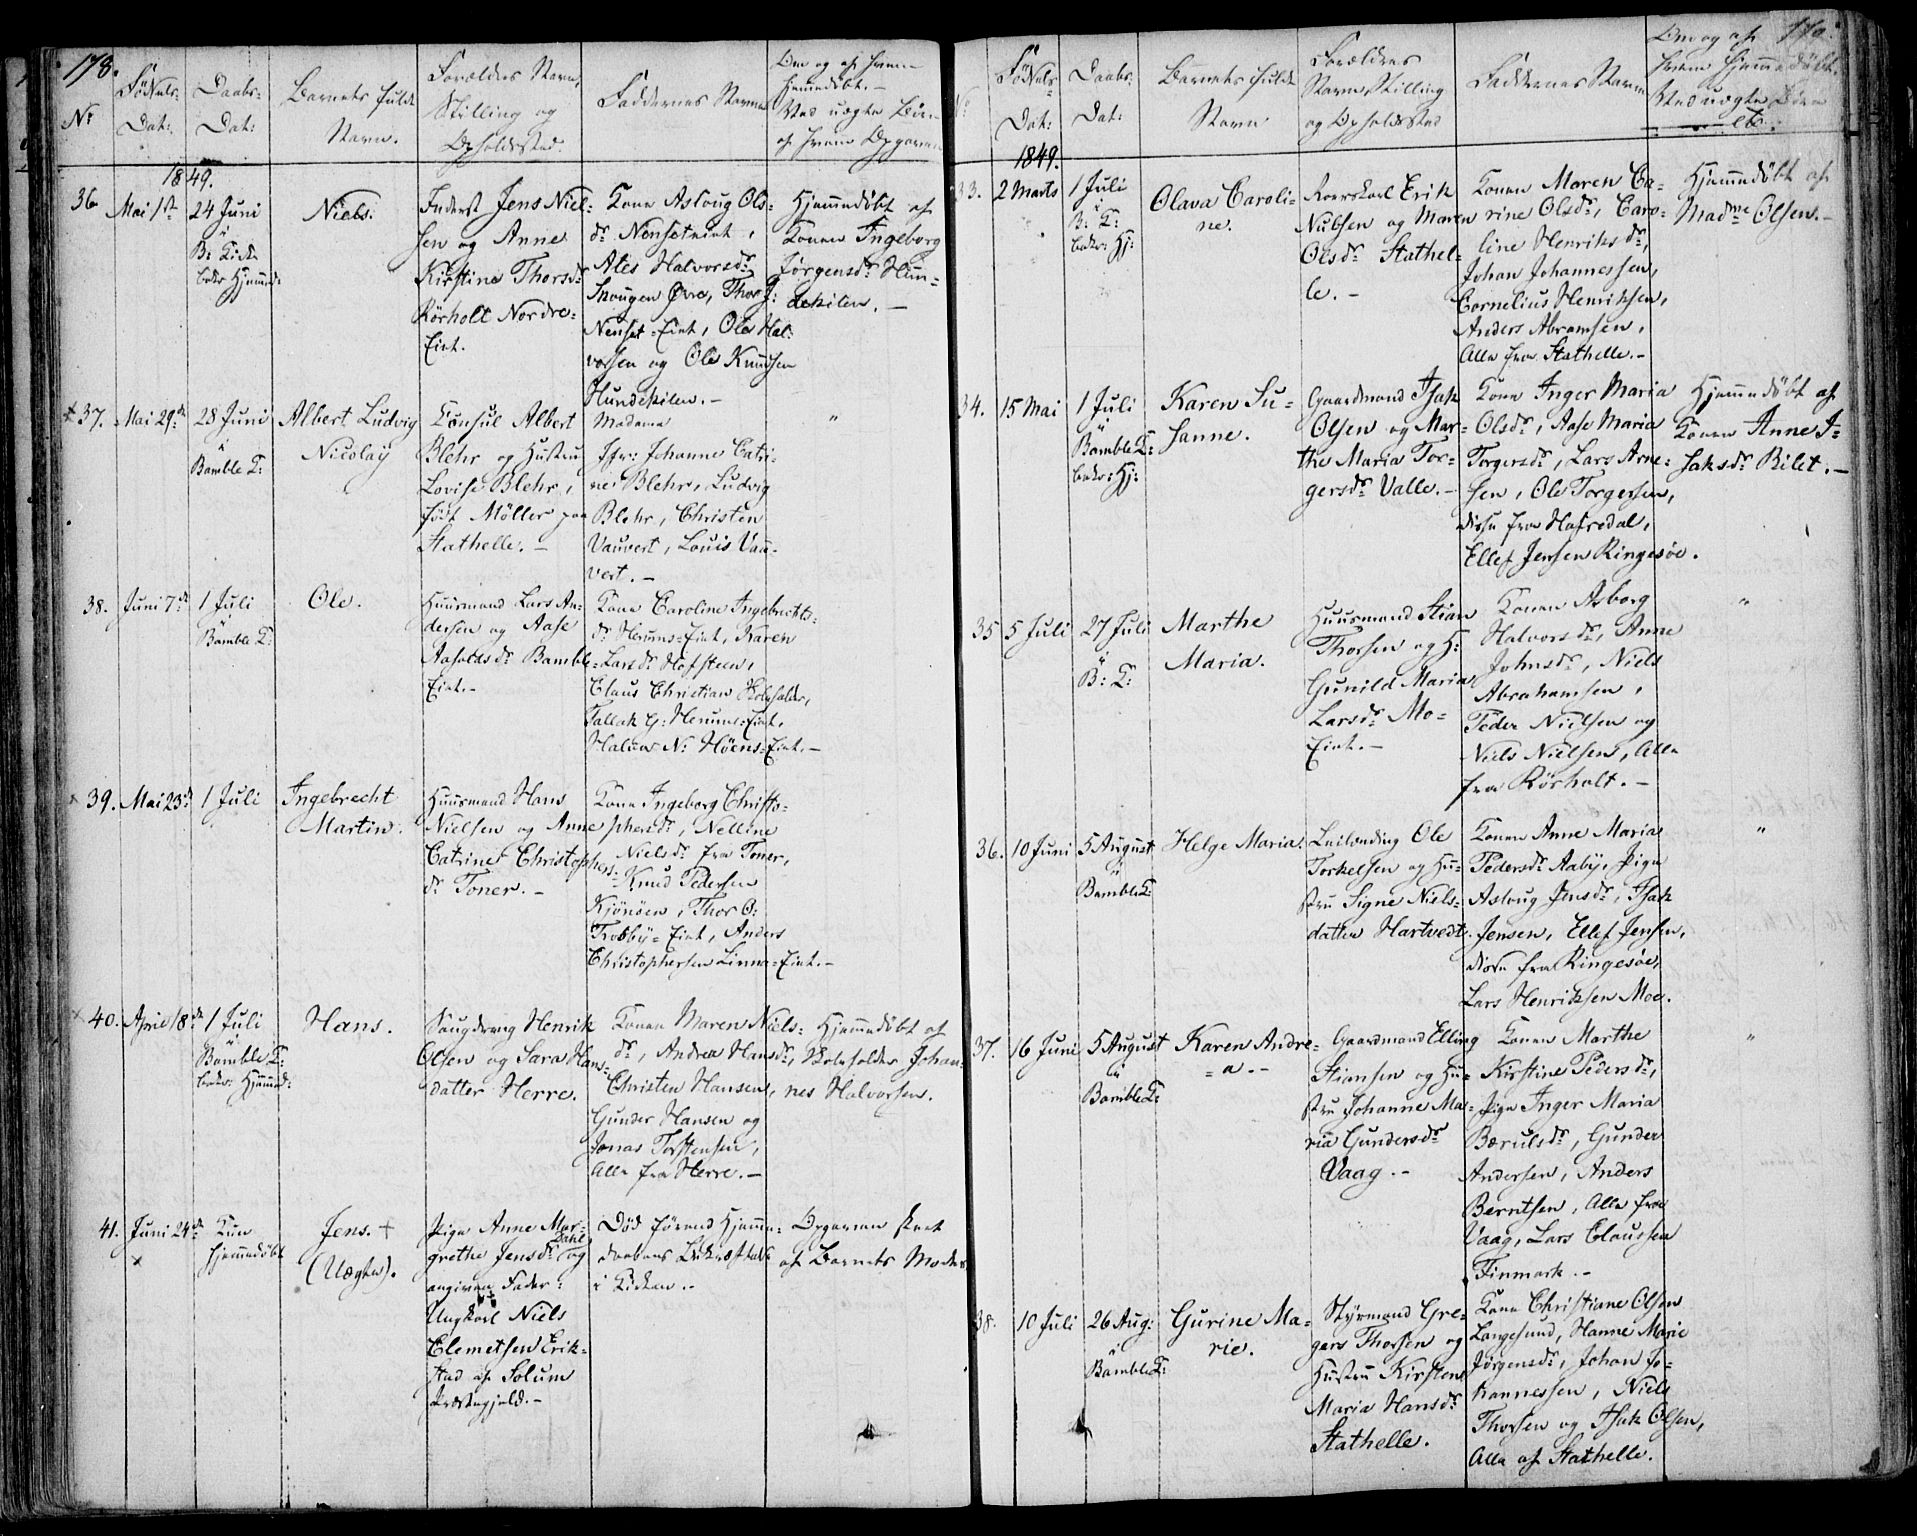 178.
Nº
Fødsels-
Dat:
Daabs-
Dat:
Barnets fulde
Navn.
Forældres Navn,
Stilling og
Opholdssted.
Faddernes Navne
Om og af hvem
Hjemmedöbt.-
Ved uægte Börn
af hvem Opgaven
1849.
36
Mai 1ste
24 Juni
i
B: Kirke
bekr: Hjemmed:
Niels.
Inderst Jens Niel-
sen og Anne
Kirstine Thorsdr
Rörholt Nordre-
Eiet.
Kone Asloug Ols-
dr Nenseteiet,
Ales Halvorsdr
Skougen Øvre, Thor J:
Nenset-Eiet, Ole Hal-
vorsen og Ole Knudsen
Hundekilen.-
Hjemmedöbt af
Konen Ingeborg
Jørgensdr Hun-
dekilen.-
37.
Mai 29de
28 Juni
i
Bamble K:
Albert Ludvig
Nicolay
Consul Albert
Blehr og Hustru
Lovise Blehr,
født Möller paa
Stathelle.-
Madame
Jfr: Johanne Catri-
ne Blehr, Ludvig
Blehr, Christen
Vauvert, Louis Vau-
vert.-
"
38.
Juni 7de
1 Juli
i
Bamble K:
Ole.
Huusmand Lars An-
dersen og Aase
Aasoldsdr Bamble-
Eiet.-
Kone Caroline Ingebrechts-
dr Herums-Eiet, Karen
Larsdr Hafsteen,
Claus Christian Skoleholder,
Tallak G: Herums-Eiet,
Halvor N: Höens-Eiet.-
39.
Mai 23de
1 Juli
Ingebrecht
Martin.
Huusmand Hans
Nielsen og Anne
Catrine Christophers-
dr Toner.-
Kone Ingeborg Christo-
phersdr, Nelline
Nielsdr fra Toner,
Knud Pedersen
Kjönöen, Thor O:
Trosby-Eiet, Anders
Christophersen Linna-Eiet.-
40.
April 18de
1 Juli
i
Bamble K:
bekr: Hjemmed:
Hans.
Saugdreng Henrik
Olsen og Sara Hans-
datter Herre.
Konen Maren Niels-
dr, Andrea Hansdr,
Christen Hansen,
Gunder Hansen og
Jonas Torstensen,
Alle fra Herre.-
Hjemmedöbt af
Skoleholder Johan-
nes Halvorsen.
41.
Juni 24de
Kun
Hjemmedöbt
Jens. +
(Uægte).
Pige Anne Mar-
grethe Jensdr Dahl og
angiven Fader:
Ungkarl Niels
Clemetsen Erik-
stad af Solum
Præstegjeld.-
Død förend Hjemme-
daabens Bekræftelse
i Kirken.-
Opgaven skeet
af Barnets Moder
179.
Nº
Fødsels-
Dat:
Daabs-
Dat:
Barnets fulde
Navn
Forældres
Navn, Stilling
og Opholdssted
Faddernes Navne
Om og af
hvem Hjemmedöbt.
Ved uægte Börn
etc:
1849.
33.
2 Marts
1 Juli
i
B: K:
bekr: Hj:
Olava Caroli-
ne.
Rorskarl Erik
Nubsen og Maren
Olsdr Stathel-
le.-
Konen Maren Ca-
rine Olsdr, Caro-
line Henriksdr,
Johan Johannessen,
Cornelius Henriksen,
Anders Abramsen,
Alle fra Stathelle.-
Hjemmedöbt af
Madme Olsen.-
34.
15 Mai
1 Juli
i
Bamble K:
bekr: Hj:
Karen Su-
sanne.
Gaardmand Isak
Olsen og Mar-
the Maria Tor-
gersdr Valle.-
Kone Inger Maria
Olsdr, Aase Maria
Torgersdr, Lars Arne-
sen, Ole Torgersen,
disse fra Hafredal,
Ellef Jensen Ringesøe.
Hjemmedöbt af
Konen Anne I-
saksdr Bilet.-
35
5 Juli
27 Juli
i
B: K:
Marthe
Maria.
Huusmand Stian
Thorsen og H:
Gunild Maria
Larsdr Mo-
Eiet.-
Konen Asborg
Halvorsdr, Anne
Johnsdr, Niels
Abrahamsen,
Peder Nielsen og
Niels Nielsen, Alle
fra Rörholt.-
"
36.
10 Juni
5 August
i
Bamble K:
Helge Maria.
Leilænding Ole
Torkelsen og Hu-
stru Signe Niels-
datter Hartvedt.
Konen Anne Maria
Pedersdr Aaby, Pige
Asloug Jensdr, Isak
Jensen, Ellef Jensen,
disse fra Ringesøe,
Lars Henriksen Moe.
"
37.
16 Juni
5 August
i
Bamble K:
Karen Andre-
a.-
Gaardmand Elling
Stiansen og Hu-
stru Johanne Ma-
ria Gundersdr
Vaag.-
Konen Marthe
Kirstine Pedersdr,
Pige Inger Maria
Bærulsdr, Gunder
Andersen, Anders
Berntsen, Alle fra
Vaag, Lars Claussen
Finmark.-
"
38.
10 Juli
26 Aug:
i
Bamble K:
Gurine Ma-
rie.
Styrmand Gre-
gers Thorsen og
Hustru Kirstene
Maria Hansdr
Stathelle.
Kone Christiane Olsen
Langesund, Hanne Marie
Jørgensdr, Johan Jo-
hannessen, Niels
Thorsen og Isak Olsen,
Alle af Stathelle.